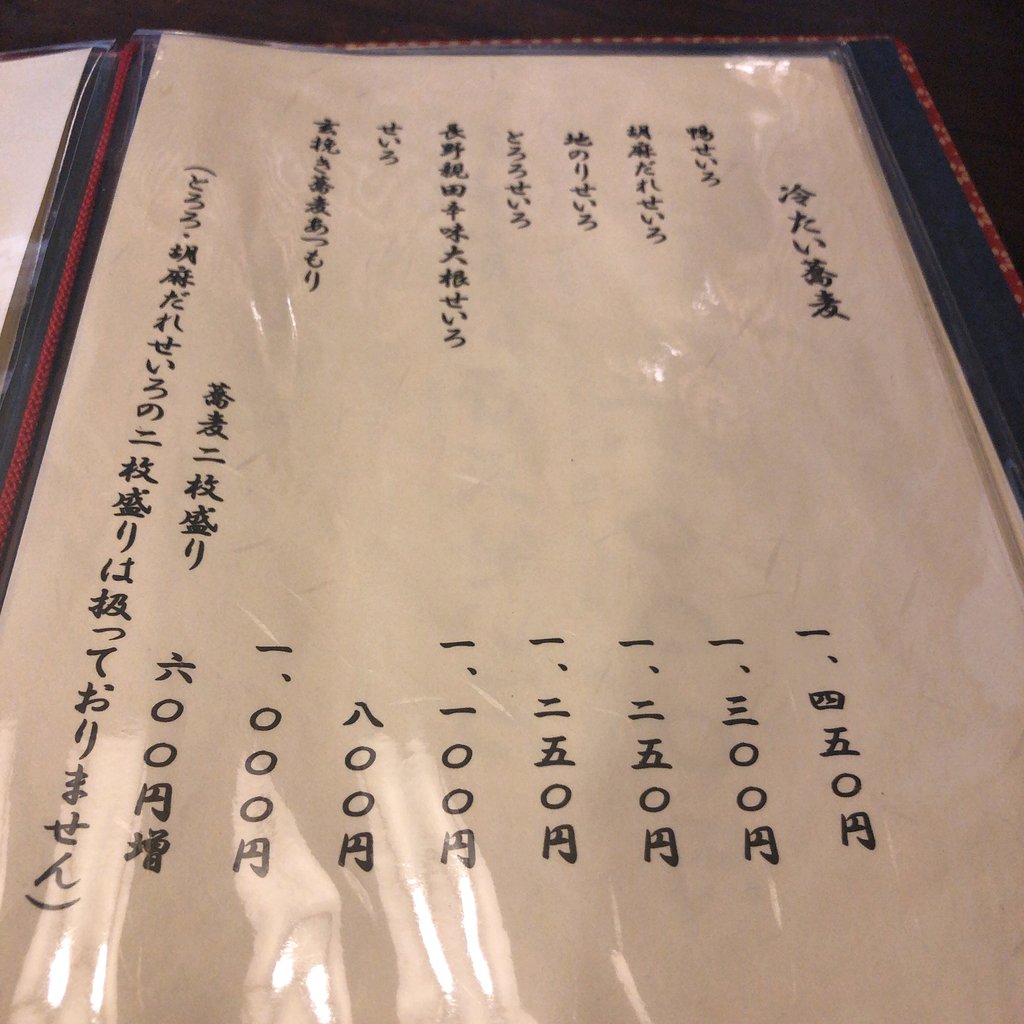 冷たい蕎麦
鴨せいろ 一、四五〇円
胡麻だれせいろ 一、三〇〇円
地のりせいろ 一、二五〇円
とろろせいろ 一、二五〇円
長野親田辛味大根せいろ 一、一〇〇円
せいろ 八〇〇円
玄挽き蕎麦あつもり 一、〇〇〇円
蕎麦二枚盛り 六〇〇円増
(とろろ・胡麻だれせいろの二枚盛りは扱っておりません)